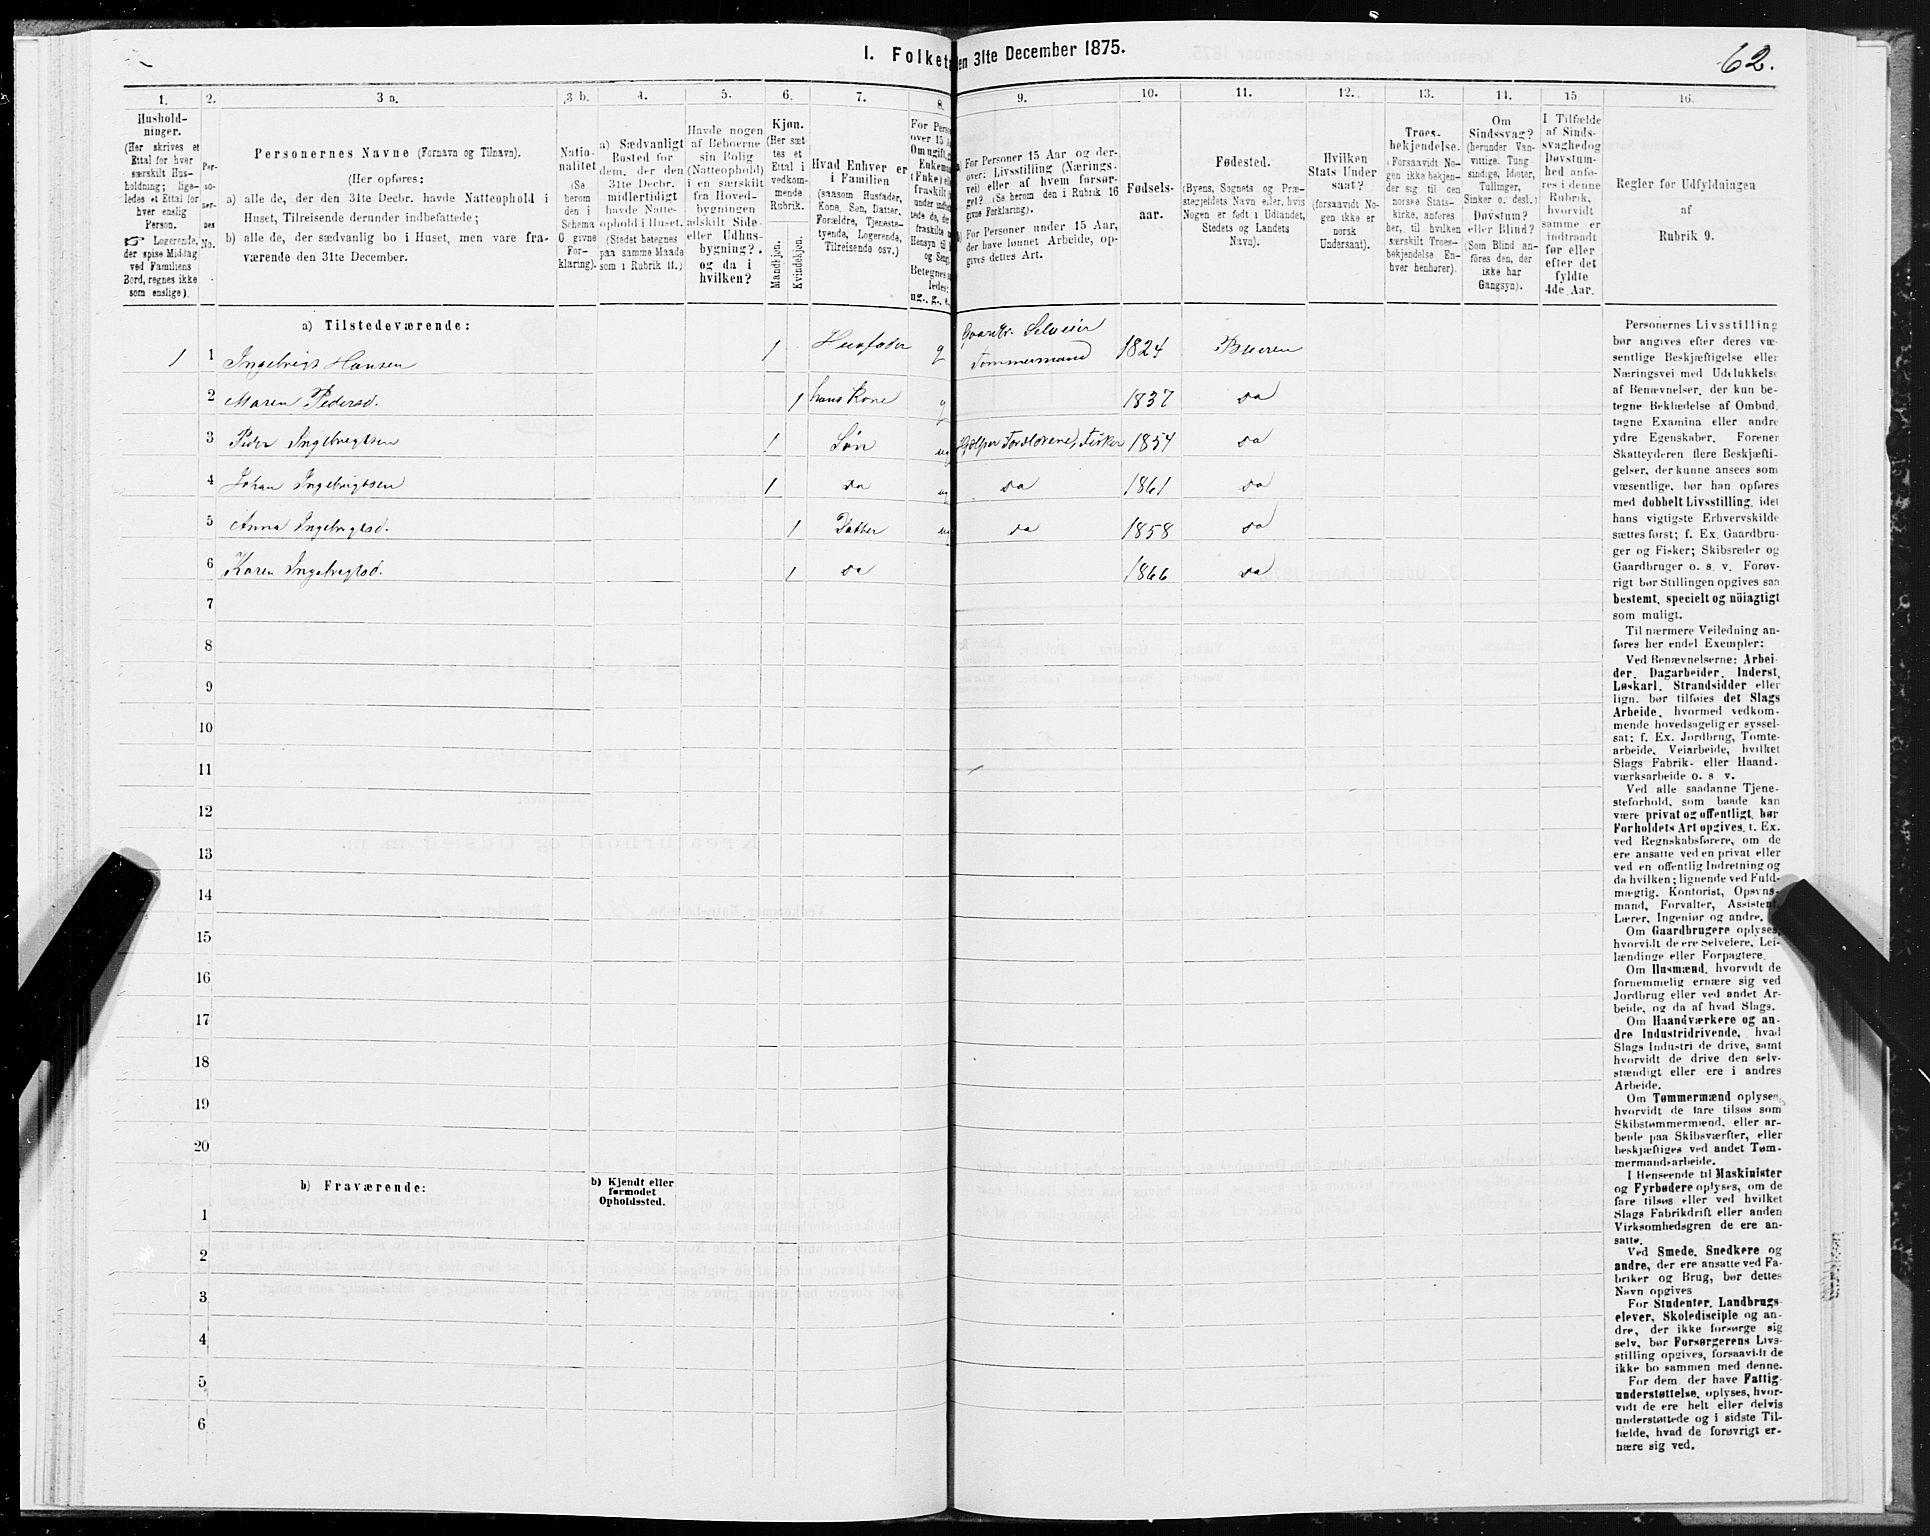 I. Folketæ
en 31te December 1875.
62.
1.
2.
3 a.
3 b.
4.
5.
6.
7.
8.
9.
10.
11.
12.
13.
14.
15
16.
Hushold-
ninger.
(Her skrives et
Ettal for hver
særskilt Hus-
holdning; lige-
ledes et Ettal for
hver enslig
Person.
Logerende,
der spise Middag
ved Familiens
Bord, regnes ikke
som enslige).
Per-
so-
ner-
nes
No.
Personernes Navne (Fornavn og Tilnavn).
(Her opføres:
a) alle de, der den 31te Decbr. havde Natteophold i
Huset, Tilreisende derunder indbefattede;
b) alle de, der sædvanlig bo i Huset, men vare fra-
værende den 31te December.
Natio-
nalitet
(Se
herom
den i
Schema
G givne
For-
klaring).
a) Sædvanligt
Bosted for
dem, der den
31te Decbr.
midlertidigt
havde Natte-
ophold i Huset.
(Stedet betegnes
paa samme Maade
som i Rubrik 11.)
Havde nogen
af Beboerne
sin Bolig
(Natteophold)
i en særskilt
fra Hoved-
bygningen
adskilt Side-
eller Udhus-
bygning?
og da i
hvilken?
Kjøn.
(Her sæt-
tes et
Ettal i
vedkom-
mende
Rubrik.
Mandkjøn.
Kvindekjøn.
Hvad Enhver er
i Familien
(saasom Husfader,
Kone, Søn, Datter,
Forældre, Tjeneste-
tyende, Logerende,
Tilreisende osv.)
For Perso
over 15 Aa
Om ugift, g
Enkema
(Enke) elle
fraskilt
Betegnes s
ledes:
ug., g., e.
a) For Personer 15 Aar og der-
over: Livsstilling (Nærings-
vei) eller af hvem forsør-
get? (Se herom den i Rubrik 16
givne Forklaring).
b) For Personer under 15 Aar,
der have lønnet Arbeide, op-
gives dettes Art.
Fødsels-
aar.
Fødested.
(Byens, Sognets og Præ-
stegjeldets Navn eller, hvis
Nogen er født i Udlandet,
Stedets og Landets
Navn).
Hvilken
Stats Under
saat?
(forsaavidt No-
gen ikke er
norsk
Undersaat).
Troes-
bekjendelse.
(Forsaavidt No-
gen ikke bekjen-
der sig til den
norske Stats-
kirke, anføres
her, til hvilken
særskilt Troes-
bekjendelse En-
hver henhører).
Om
Sindssvag?
(herunder Van-
vittige, Tung
sindige, Idioter,
Tullinger,
Sinker o. desl.)
Døvstum?
eller Blind?
(Som Blind an-
føres den, der
ikke har
Gangsyn).
I Tilfælde
af Sinds-
svaghed og
Døvstum-
hed anfø-
res i denne
Rubrik,
hvorvidt
samme er
indtraadt
før eller
efter det
fyldte
4de Aar.
Regler for Udfyldningen
af
Rubrik 9.
a) Tilstedeværende:
1 1 Ingebrigt Hansen 1 Husfader g Gaardbr. Selveier
Tømmermand 1824 Bueren
2 Maren Pedersd. 1 hans Kone g 1837 do
3 Peder Ingebrigtsen 1 Søn ug Hjælper Forældrene, Fisker 1854 do
4 Johan Ingebrigtsen 1 do ug do 1861 do
5 Anna Ingebrigtsd. 1 Datter ug do 1858 do
6 Karen Ingebrigtsd. 1 do 1866 do
7
8
9
10
11
12
13
14
15
16
17
18
19
20
b) Fraværende:
b) Kjendt eller
formodet
Opholdssted.
1
2
3
4
5
6
Personernes Livsstilling
bør angives efter deres væ-
sentlige Beskjæftigelse eller
Næringsvei med Udelukkelse
af Benævnelser, der kun be-
tegne Beklædelse af Ombud,
tagne Examina eller andre
ydre Egenskaber. Forener
Skatteyderen flere Beskjæfti-
gelser, der kunne ansees som
væsentlige, bør han opføres
med dobbelt Livsstilling, idet
hans vigtigste Erhvervskilde
sættes først; f. Ex. Gaardbru-
ger og Fisker; Skibsreder og
Gaardbruger o. s. v. Forøv-
rigt bør Stillingen opgives saa
bestemt, specielt og nöiagtigt
som muligt.
Til nærmere Veiledning an-
føres her endel Exempler:
Ved Benævnelserne: Arbei-
der, Dagarbeider, Inderst,
Løskarl, Strandsidder eller
lign. bør tilføies det Slags
Arbeide, hvormed vedkom-
mende hovedsagelig er syssel-
sat; f. Ex. Jordbrug, Tomte-
arbeide, Veiarbeide, hvilket
Slags Fabrik- eller Haand-
værksarbeide o. s v.
Ved alle saadanne Tjene-
steforhold, som baade kan
være privat og offentligt, bør
Forholdets Art opgives, t. Ex.
ved Regnskabsførere, om de
ere ansatte ved en privat eller
ved en offentlig Indretning og
da hvilken; lignende ved Fuld-
mægtig, Kontorist, Opsyns-
mand, Forvalter, Assistent,
Lærer, Ingeniør og andre.
Om Gaardbrugere oplyses,
hvorvidt de ere Selveiere, Lei-
lændinge eller Forpagtere.
Om Husmænd, hvorvidt de
fornemmelig ernære sig ved
Jordbrug eller ved andet Ar-
beide, og da af hvad Slags.
Om Haandværkere og an-
dre Industridrivende, hvad
Slags Industri de drive, samt
hvorvidt de drive den selv-
stændigt eller ere i andres
Arbeide.
Om Tømmermænd oplyses,
hvorvidt de fare tilsøs som
Skibstømmermænd, eller ar-
beide paa Skibsværfter, eller
beskjæftiges ved andet Tøm-
mermandsarbeide.
I Henseende til Maskinister
og Fyrbødere oplyses, om de
fare tilsøs eller ved hvilket
Slags Fabrikdrift eller anden
Virksomhedsgren de ere an-
satte.
Ved Smede, Snedkere og
andre, der ere ansatte ved Fa-
briker og Brug, bør dettes
Navn opgives
For Studenter, Landbrugs-
elever, Skoledisciple og an-
dre, der ikke forsørge sig
selv, bør Forsørgerens Livs-
stilling opgives, forsaavidt de
ikke bo sammen med denne.
For dem, der have Fattig-
understøttelse, oplyses, hvor-
vidt de ere helt eller delvis
understøttede og i sidste Til-
fælde, hvad de forøvrigt er-
nære sig ved.